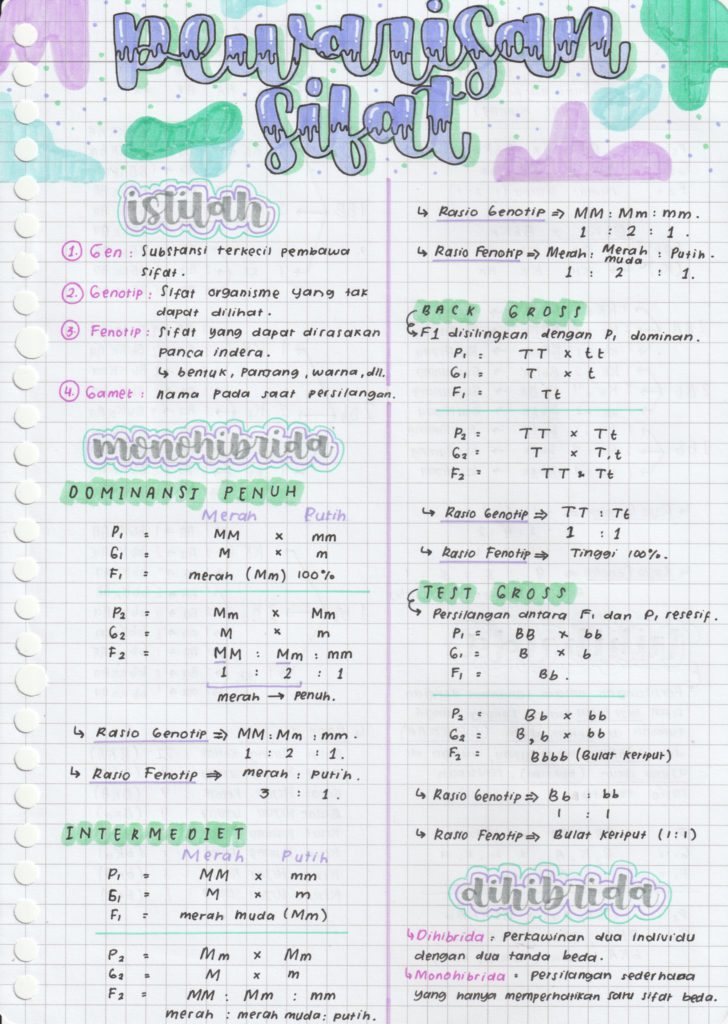 pewarisan
sifat
istilah
1. Gen : Substansi terkecil pembawa
sifat.
2. Genotip : Sifat organisme yang tak
dapat dilihat.
3 Fenotip : Sifat yang dapat dirasakan
panca indera.
↳ bentuk, panjang, warna, dll.
4. Gamet : nama pada saat persilangan.
monohibrida
DOMINANSI PENUH
Merah Putih
P1 = MM x mm
G1 = M x m
F1 = merah (Mm) 100%
P2 = Mm x Mm
G2 = M x m
F2 = MM : Mm : mm
1 : 2 : 1
merah → penuh.
↳ Rasio Genotip ⇒ MM : Mm : mm.
1 : 2 : 1.
↳ Rasio Fenotip ⇒ merah : putih.
3 : 1.
INTERMEDIET
Merah Putih
P1 = MM x mm
G1 = M x m
F1 = merah muda (Mm)
P2 = Mm x Mm
G2 = M x m
F2 = MM : Mm : mm
merah : merah muda : putih.
↳ Rasio Genotip ⇒ MM : Mm : mm.
1 : 2 : 1.
↳ Rasio Fenotip ⇒ Merah : Merah muda : Putih.
1 : 2 : 1.
BACK GROSS
↳ F1 disilingkan dengan P1 dominan.
P1 = TT x tt
G1 = T x t
F1 = Tt
P2 = TT x Tt
G2 = T x T,t
F2 = TT & Tt
↳ Rasio Genotip ⇒ TT : Tt
1 : 1
↳ Rasio Fenotip ⇒ Tinggi 100%.
TEST GROSS
↳ Persilangan antara F1 dan P1 resesif.
P1 = BB x bb
G1 = B x b
F1 = Bb.
P2 = Bb x bb
G2 = B, b x bb
F2 = Bbbb (Bulat Keriput)
↳ Rasio Genotip ⇒ Bb : bb
1 : 1
↳ Rasio Fenotip ⇒ Bulat keriput (1:1)
dihibrida
↳ Dihibrida : Perkawinan dua individu
dengan dua tanda beda.
↳ Monohibrida = Persilangan sederhana
yang hanya memperhatikan satu sifat beda.